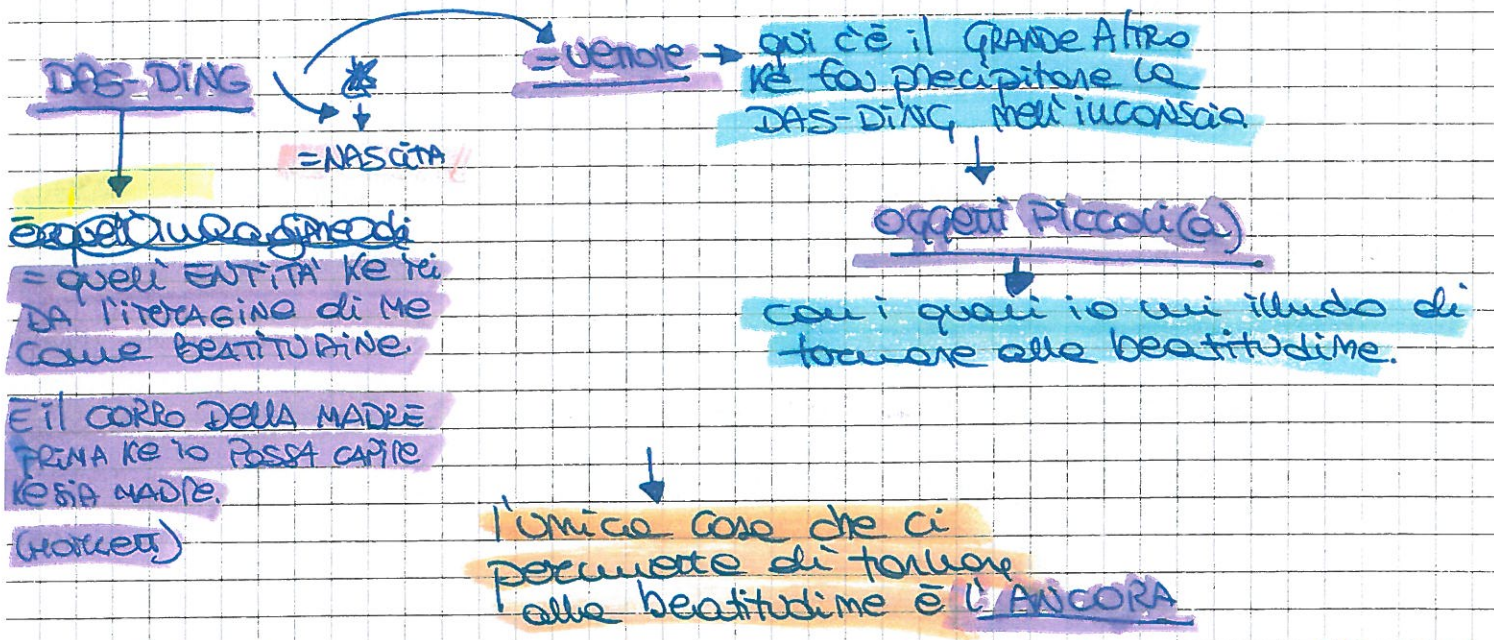 DAS-DING
= NASCITA
= vettore → qui c'è il GRANDE AltRO
Ke fa precipitare la
DAS-DING nell'inconscio.
= quell' ENTITÀ Ke mi
DA l'immAGINE di me
come BEATITUDINE.
E il CORPO DELLA MADRE
PRIMA Ke io POSSA CAPIRE
Ke SIA MADRE.
oggetti Piccoli (a)
con i quali io mi illudo di
tornare alla beatitudine.
l'unica cosa che ci
permette di tornare
alla beatitudine è l'ANCORA